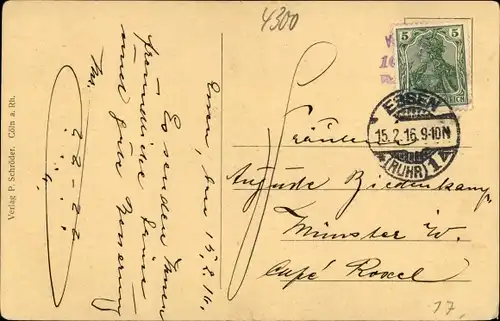 4300
5
5
REICH
ESSEN
15.2.16.9-10N
* (RUHR) 1 *
Fräulein
Auguste Biedenkamp
Münster i/W.
Café Roxel
17.
Essen, den 15.2.16.
Es senden Ihnen
freundliche Grüße
und gute Besserung
Verlag P. Schröder. Cöln a. Rh.